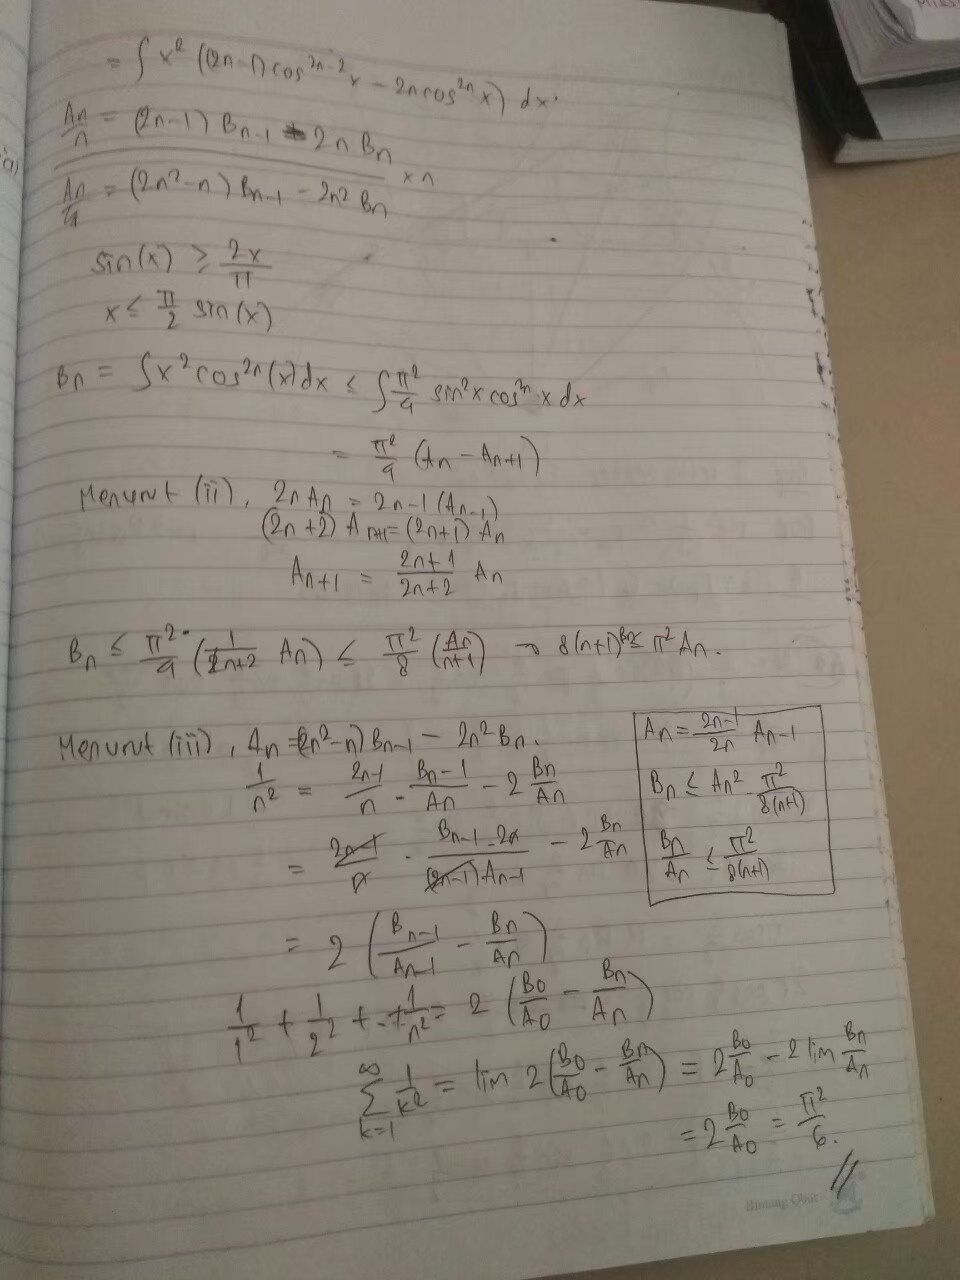 = ∫ x² ((2n-1) cos²ⁿ⁻² x - 2n cos²ⁿ x) dx.
An/n = (2n-1) Bn-1 - 2n Bn
× n
= (2n²-n) Bn-1 - 2n² Bn
sin(x) ≥ 2x/π
x ≤ π/2 sin(x)
Bn = ∫ x² cos²ⁿ(x) dx ≤ ∫ π²/4 sin²x cos²ⁿ x dx
= π²/4 (An - An+1)
Menurut (ii), 2n An = 2n-1 (An-1)
(2n+2) An+1 = (2n+1) An
An+1 = 2n+1/2n+2 An
Bn ≤ π²/4 (1/2n+2 An) ≤ π²/8 (An/n+1) → 8(n+1) Bn ≤ π² An.
Menurut (iii), An = (2n²-n) Bn-1 - 2n² Bn.
1/n² = 2n-1/n · Bn-1/An - 2 Bn/An
= 2n-1/n · Bn-1 · 2n/(2n-1) An-1 - 2 Bn/An
= 2 (Bn-1/An-1 - Bn/An)
An = 2n-1/2n An-1
Bn ≤ An² π²/8(n+1)
Bn/An ≤ π²/8(n+1)
1/1² + 1/2² + .. + 1/n² = 2 (B0/A0 - Bn/An)
∞∑k=1 1/k² = lim 2 (B0/A0 - Bn/An) = 2 B0/A0 - 2 lim Bn/An
= 2 B0/A0 = π²/6.
Bintang Obor